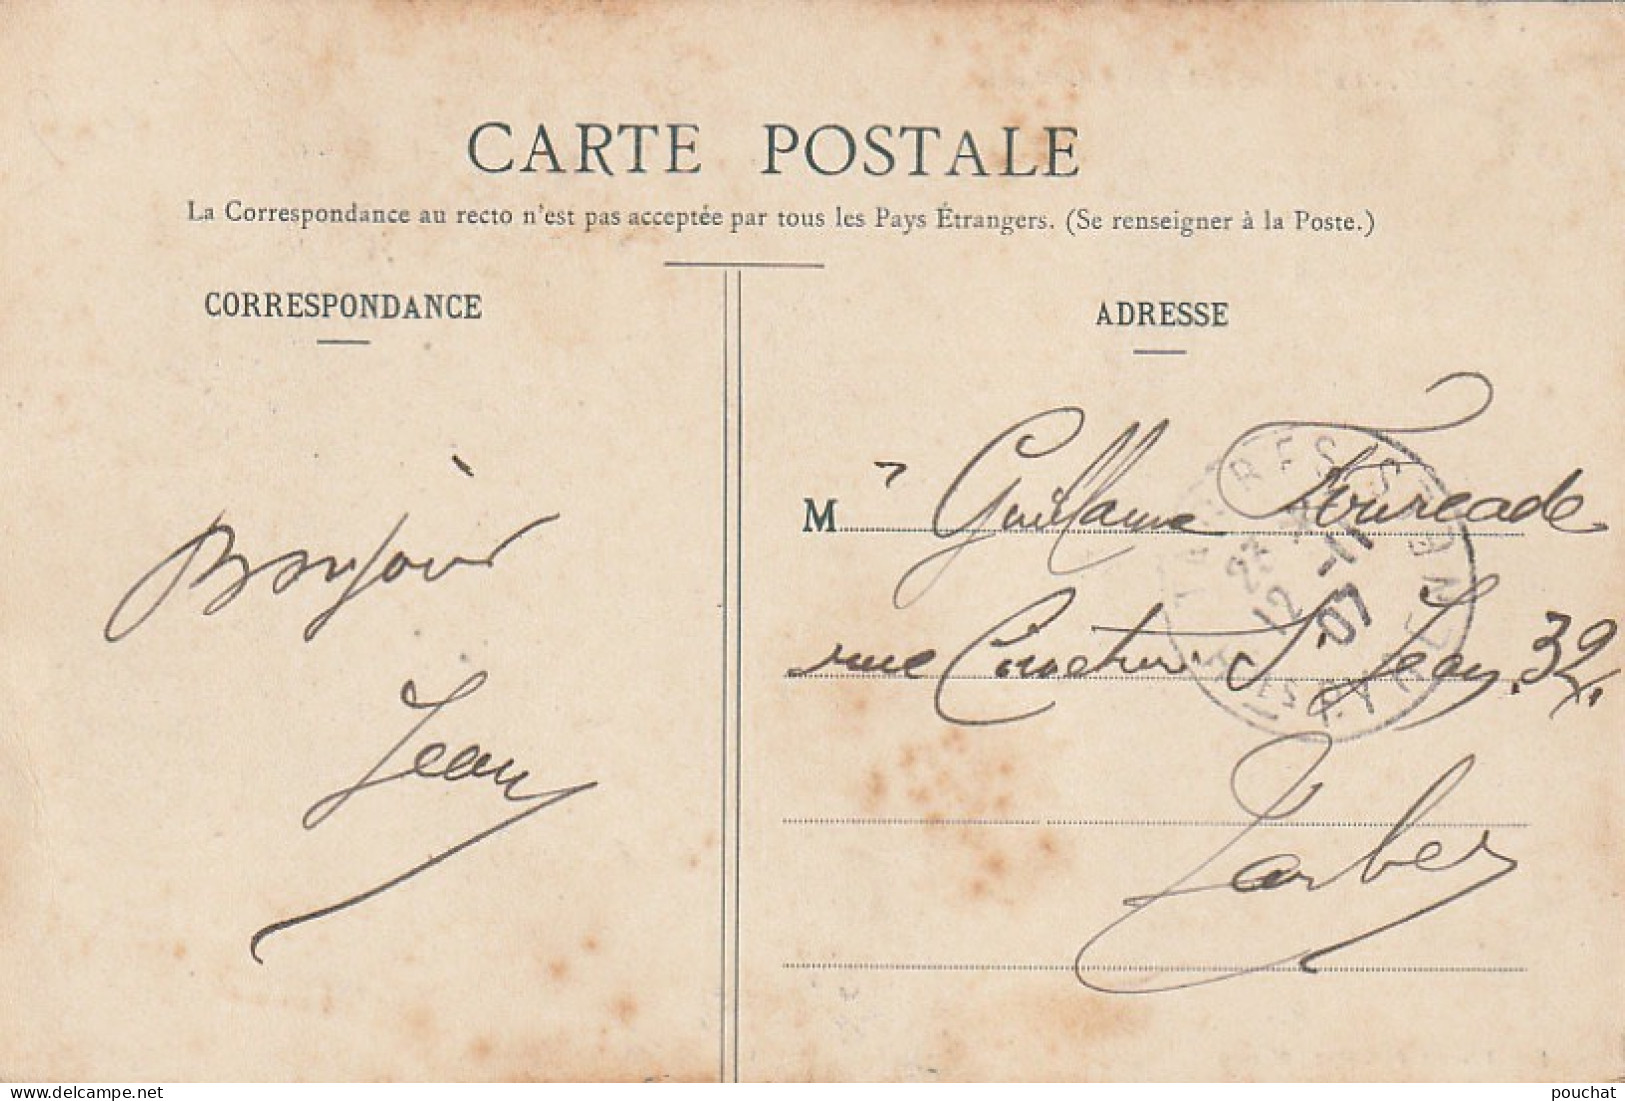 CARTE POSTALE
La Correspondance au recto n'est pas acceptée par tous les Pays Étrangers. (Se renseigner à la Poste.)
CORRESPONDANCE
Bonjour
Jean
ADRESSE
M r Guillaume Fourcade
rue St Jean, 32.
Tarbes
TARBES
23 - 11
12 07
Htes PYRENEES
delcampe.net
pouchat